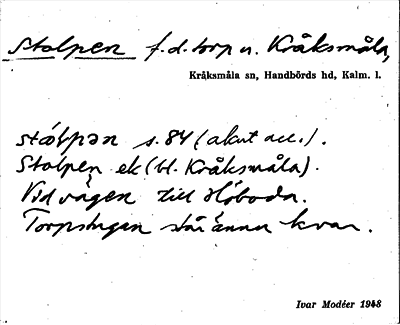 Stolpen f.d. torp u. Kråksmåla,
Kråksmåla sn, Handbörds hd, Kalm. l.
stɔ́lpən s. 84 (akut acc.).
Stolpen ek (bl. Kråksmåla).
Vid vägen till Höboda.
Torpstugan står ännu kvar.
Ivar Modéer 1948